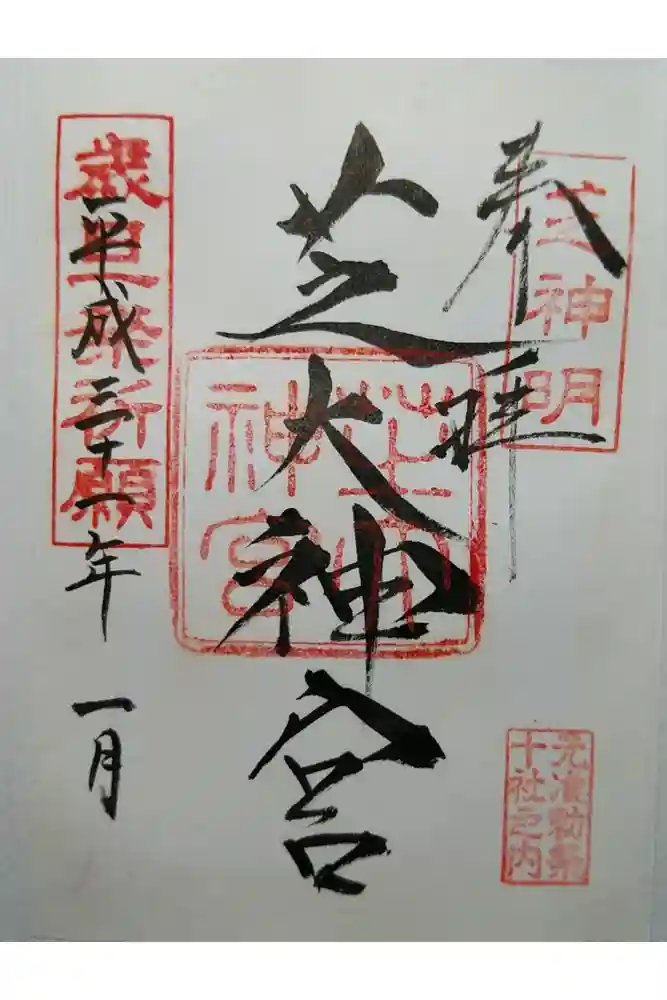 奉拝
芝神明
芝大神宮
芝大神宮
元准勅祭
十社之内
歳旦祭祈願
平成三十一年 一月